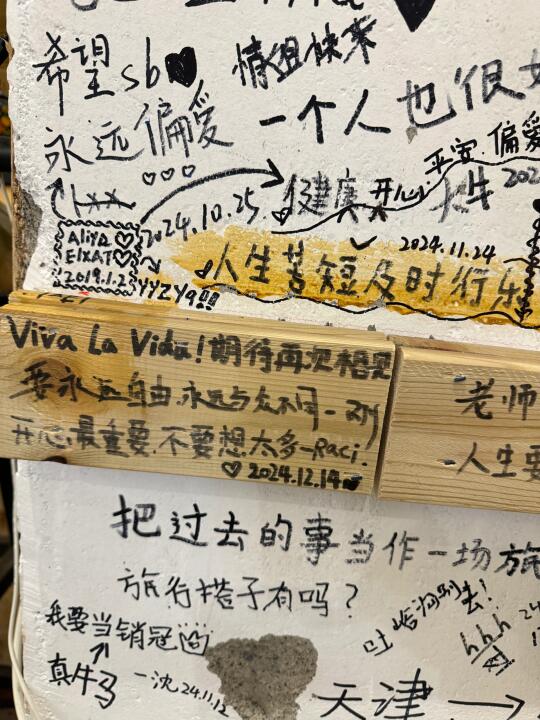 希望sb
情绪快来
永远偏爱
一个人也很
平安.偏爱
健康开心
2024.10.25
2024.11.24
Aliya
ElXAT
2019.1.2
YYZYq!!!
人生苦短及时行乐
Viva La Vida!期待再次相见
要永远自由.永远与众不同-ZJY
开心最重要.不要想太多-Raci.
2024.12.14
老师
人生要
把过去的事当作一场旅
旅行搭子有吗?
吐哈湖别去!
hhh
24
我要当销冠
真牛马
一沈24.11.12
天津→